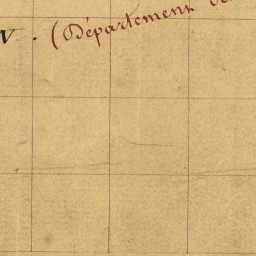 (Département